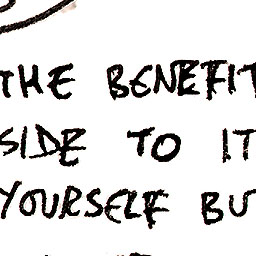 THE BENEFIT
SIDE TO IT
YOURSELF BU